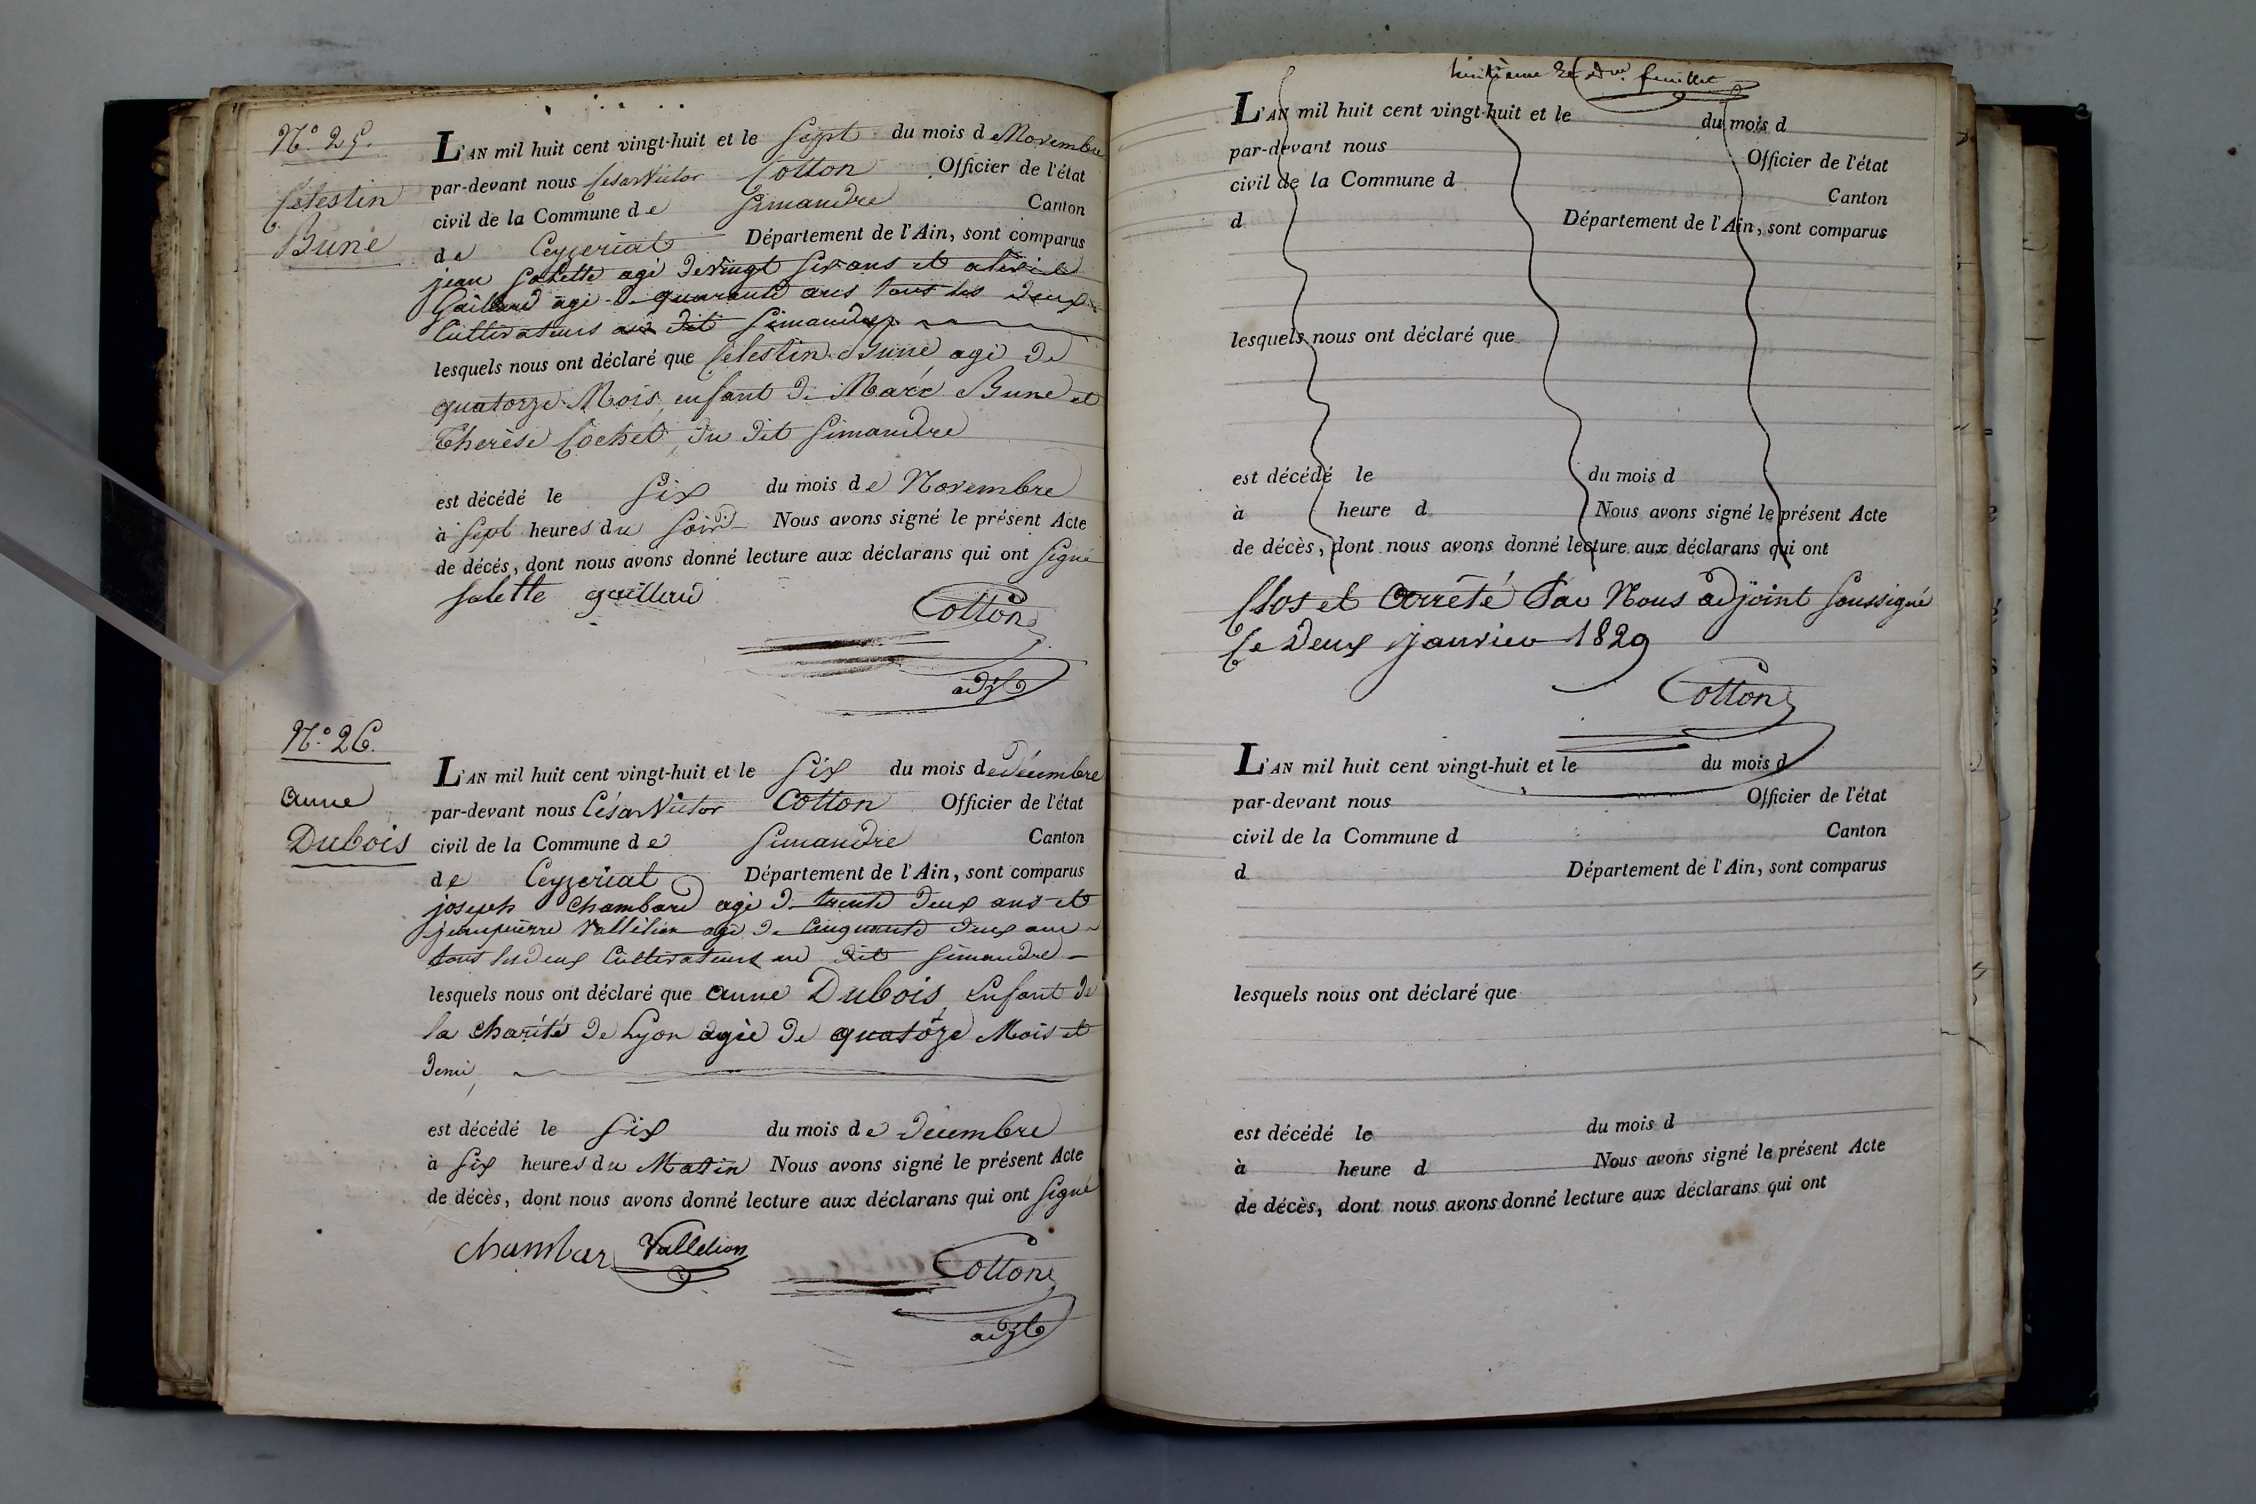 N.° 25.
Célestin
Buné
L'AN mil huit cent vingt-huit et le Sept du mois de Novembre
par-devant nous César Victor Cotton Officier de l'état
civil de la Commune de Simandre Canton
de Ceyzeriat Département de l'Ain, sont comparus
jean Solette agé de vingt six ans et
Gaillard agé de quarante ans tous les deux
Cultivateurs au dit Simandre
lesquels nous ont déclaré que Célestin Buné agé de
quatorze Mois, enfant de Marie Bune et
Therèse Cochet, du dit Simandre
est décédé le Six du mois de Novembre
à Sept heures du Soir Nous avons signé le présent Acte
de décés, dont nous avons donné lecture aux déclarans qui ont Signé
Solette gaillard
Cotton
adjt
N.° 26.
anne
Dubois
L'AN mil huit cent vingt-huit et le Six du mois de Décembre
par-devant nous César Victor Cotton Officier de l'état
civil de la Commune de Simandre Canton
de Ceyzeriat Département de l'Ain, sont comparus
joseph Chambard agé de trente deux ans et
jean pierre Vallélion agé de Cinquante deux ans
tous les deux Cultivateurs au dit Simandre
lesquels nous ont déclaré que anne Dubois, Enfant de
la charité de Lyon agée de quatorze Mois et
demi,
est décédé le Six du mois de décembre
à Six heures du Matin Nous avons signé le présent Acte
de décès, dont nous avons donné lecture aux déclarans qui ont Signé
Chambar Vallelion
Cotton
adjt
huitième et der feuillet
L'AN mil huit cent vingt-huit et le du mois d
par-devant nous Officier de l'état
civil de la Commune d Canton
d Département de l'Ain, sont comparus
lesquels nous ont déclaré que
est décédé le du mois d
à heure d Nous avons signé le présent Acte
de décès, dont nous avons donné lecture aux déclarans qui ont
Clos et Arrêté Par Nous adjoint Soussigné
Ce Deux janvier 1829
Cotton
L'AN mil huit cent vingt-huit et le du mois d
par-devant nous Officier de l'état
civil de la Commune d Canton
d Département de l'Ain, sont comparus
lesquels nous ont déclaré que
est décédé le du mois d
à heure d Nous avons signé le présent Acte
de décès, dont nous avons donné lecture aux déclarans qui ont